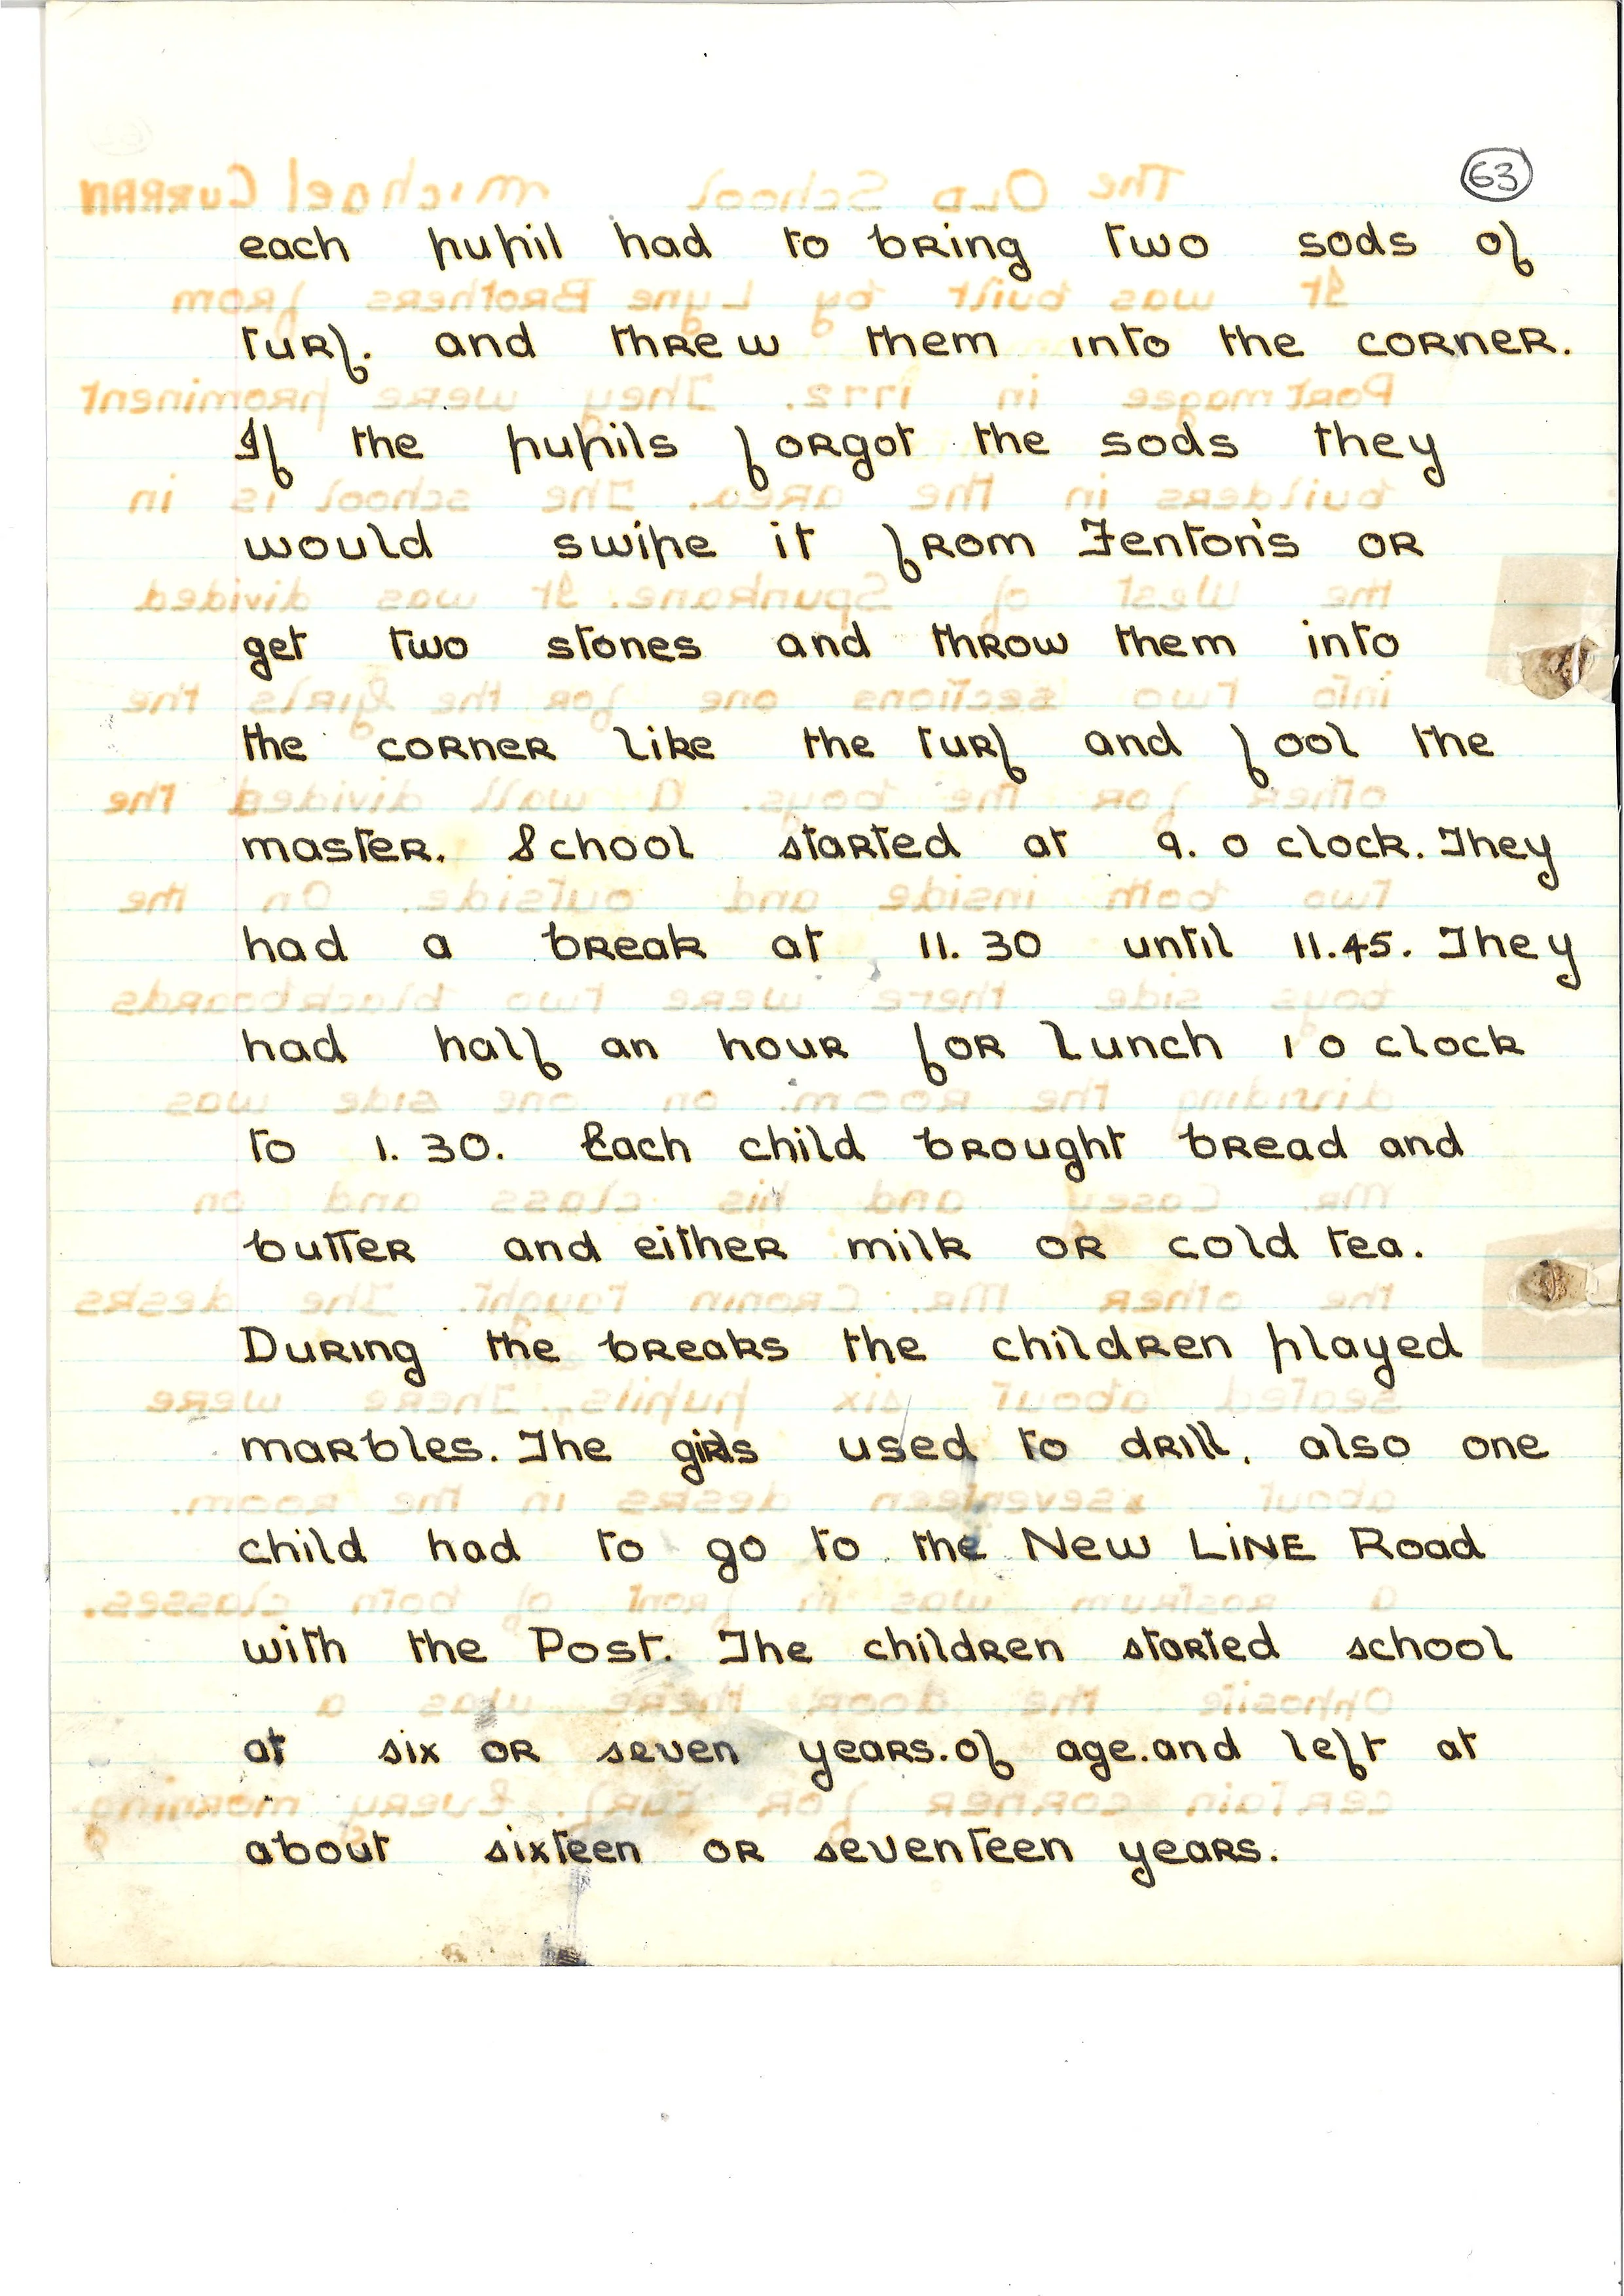 63
each pupil had to bring two sods of
turf. and threw them into the corner.
If the pupils forgot the sods they
would swipe it from Fenton's or
get two stones and throw them into
the corner like the turf and fool the
master. School started at 9. o clock. They
had a break at 11. 30 until 11.45. They
had half an hour for lunch 1 o clock
to 1. 30. Each child brought bread and
butter and either milk or cold tea.
During the breaks the children played
marbles. The girls used to drill, also one
child had to go to the New LINE Road
with the Post. The children started school
at six or seven years.of age.and left at
about sixteen or seventeen years.